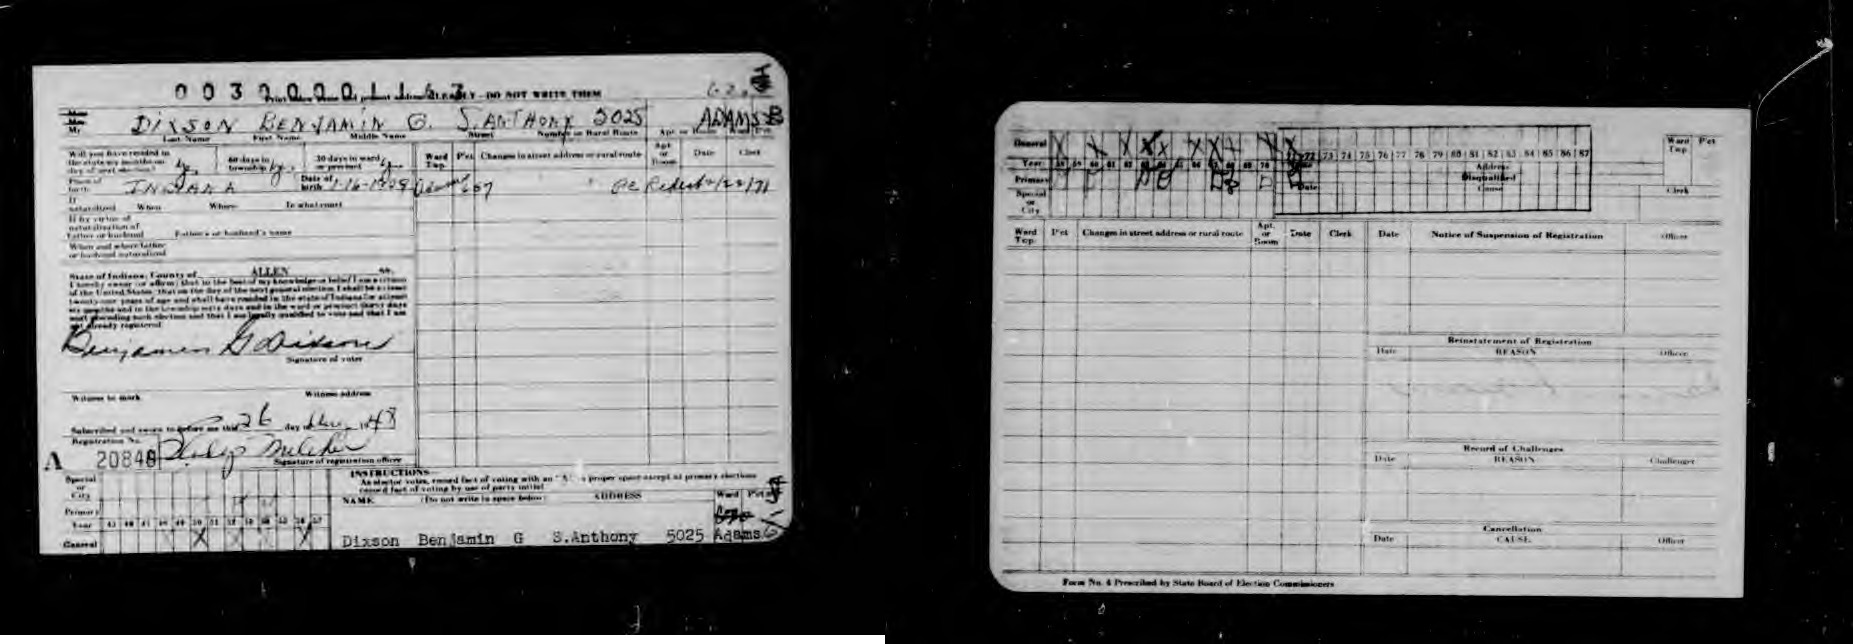 0 0 3 0 0 0 0 1 1 6 3
CLEARLY - DO NOT WRITE THEM
Mr. DIXSON BENJAMIN G. S. ANTHONY 5025 ADAMS B
Last Name First Name Middle Name Street Number or Rural Route Apt. or Route Ward Pct.
Will you have resided in the state six months on day of next election? 60 days in township 30 days in ward or precinct
Ward Twp. Pct. Changes in street address or rural route Apt. or Room Date Clerk
Place of birth INDIANA Date of birth
Adams 607 Pc Redist 2/22/71
If naturalized When Where In what court
If by virtue of naturalization of father or husband Father's or husband's name
When and where father or husband naturalized
State of Indiana, County of ALLEN ss.
I hereby swear (or affirm) that to the best of my knowledge or belief I am a citizen
of the United States; that on the day of the next general election, I shall be at least
twenty-one years of age and shall have resided in the state of Indiana for at least
six months and in the township sixty days and in the ward or precinct thirty days
next preceding such election and that I am legally qualified to vote and that I am
not already registered.
Benjamin G Dixson
Signature of voter
Witness to mark Witness address
Subscribed and sworn to before me this 26 day of 1948
Registration No.
A 20848
Signature of registration officer
INSTRUCTIONS
As elector votes, record fact of voting with an "X" in proper space except at primary elections
record fact of voting by use of party initial
Special or City
Primary
Year
General
NAME (Do not write in space below) ADDRESS Ward Pct.
Dixson Benjamin G S.Anthony 5025 Adams
General
Year 70 72 73 74 75 76 77 78 79 80 81 82 83 84 85 86 87
Primary
Special or City
Address
Disqualified
Date Cause Clerk
Ward Twp Pct
Ward Twp. Pct Changes in street address or rural route Apt. or Room Date Clerk Date Notice of Suspension of Registration Officer
Reinstatement of Registration
Date REASON Officer
Record of Challenges
Date REASON Challenger
Cancellation
Date CAUSE Officer
Form No. 4 Prescribed by State Board of Election Commissioners